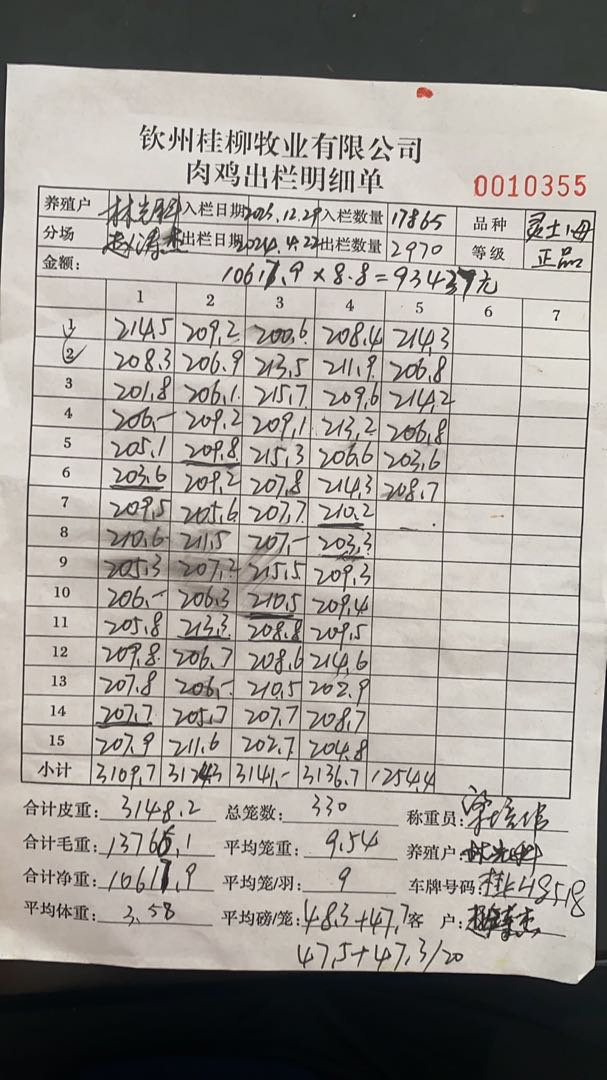 钦州桂柳牧业有限公司
肉鸡出栏明细单
0010355
养殖户 林光科 入栏日期 2023.12.29 入栏数量 17865 品种 灵土1母
分场 出栏日期 2024.4.22 出栏数量 2970 等级 正品
金额: 10617.9×8.8=93437元
1 2 3 4 5 6 7
1 214.5 209.2 200.6 208.4 214.3
2 208.3 206.9 213.5 211.9 206.8
3 201.8 206.1 215.7 209.6 214.2
4 206.- 209.2 209.1 213.2 206.8
5 205.1 209.8 215.3 206.6 203.6
6 203.6 209.2 207.8 214.3 208.7
7 209.5 205.6 207.7 210.2
8 210.6 211.5 207.- 203.3
9 205.3 207.2 215.5 209.3
10 206.- 206.3 210.5 209.4
11 205.8 213.3 208.8 209.5
12 209.8 206.7 208.6 214.6
13 207.8 206.- 210.5 202.9
14 207.7 205.7 207.7 208.7
15 207.9 211.6 202.7 204.8
小计 3109.7 3124.3 3141.- 3136.7 1254.4
合计皮重: 3148.2 总笼数: 330 称重员:
合计毛重: 13766.1 平均笼重: 9.54 养殖户: 林光科
合计净重: 10617.9 平均笼/羽: 9 车牌号码: 桂L48518
平均体重: 3.58 平均磅/笼: 48.3+47.7 客 户:
47.5+47.3/20